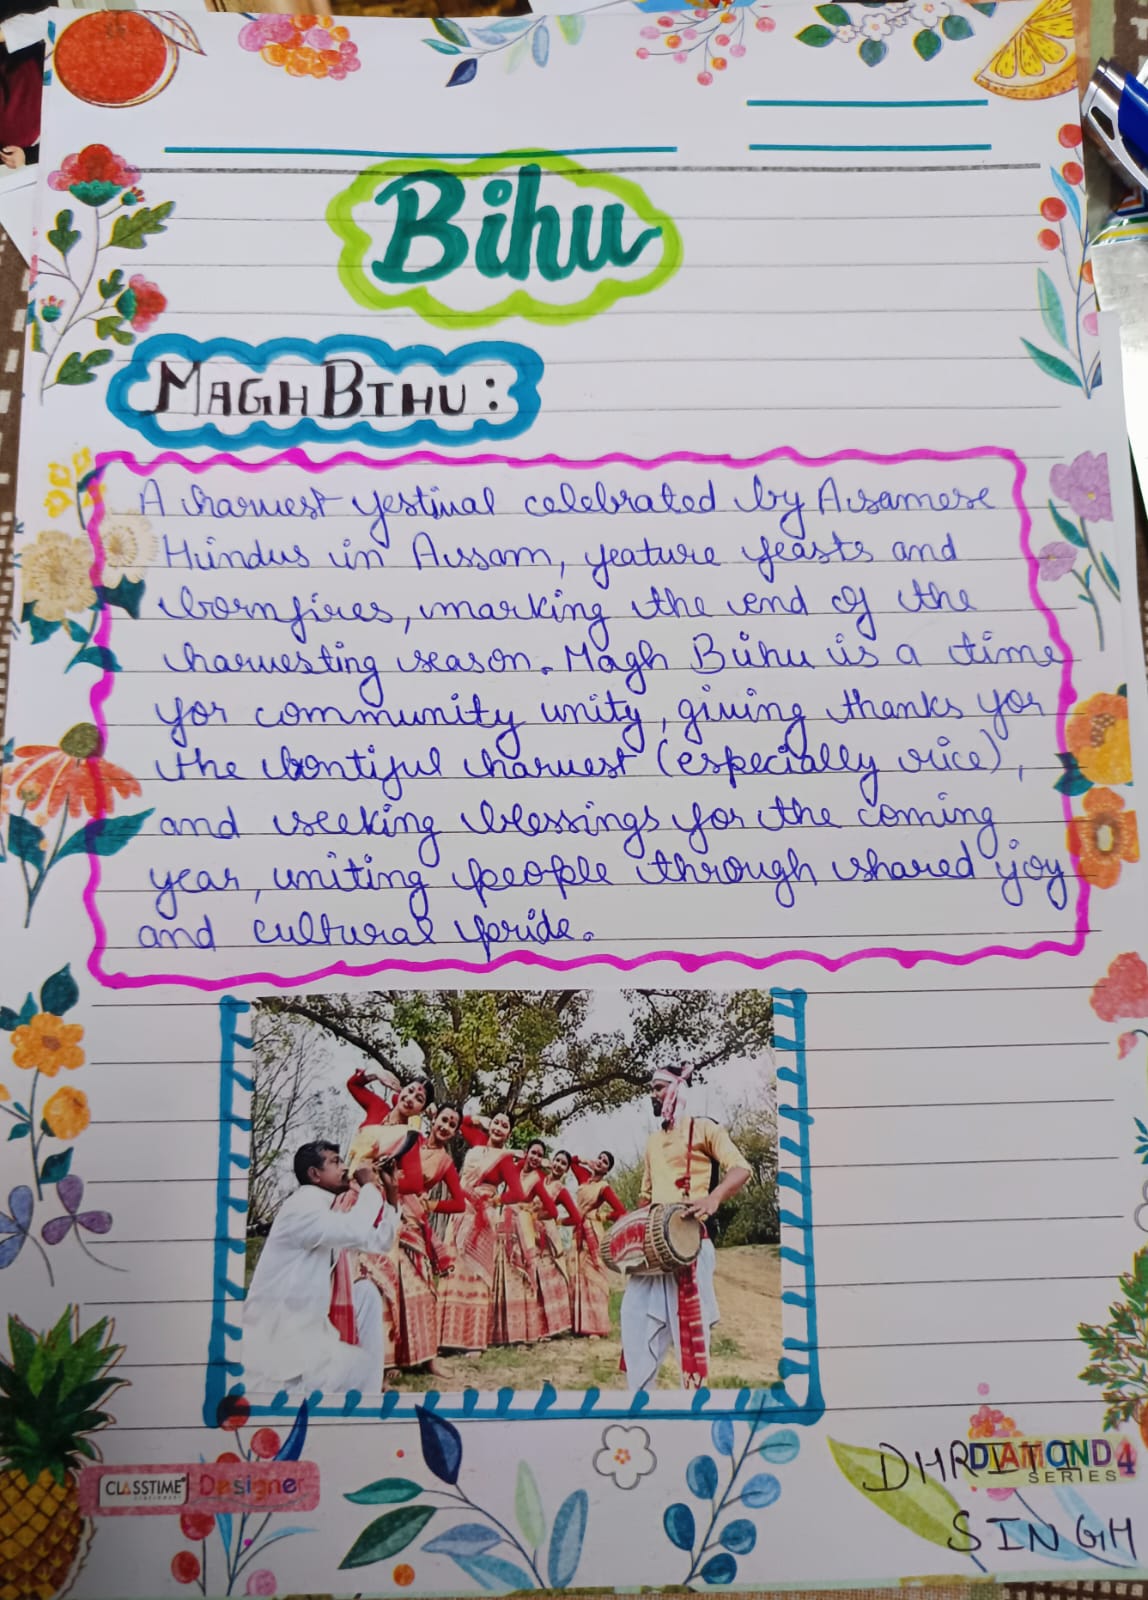 Bihu
MAGH BIHU:
A harvest festival celebrated by Assamese
Hindus in Assam, feature feasts and
bornfires, marking the end of the
harvesting season. Magh Bihu is a time
for community unity, giving thanks for
the bontiful harvest (especially rice),
and seeking blessings for the coming
year, uniting people through shared joy
and cultural pride.
CLASSTIME Designer
DIAMOND 4
SERIES
SINGH